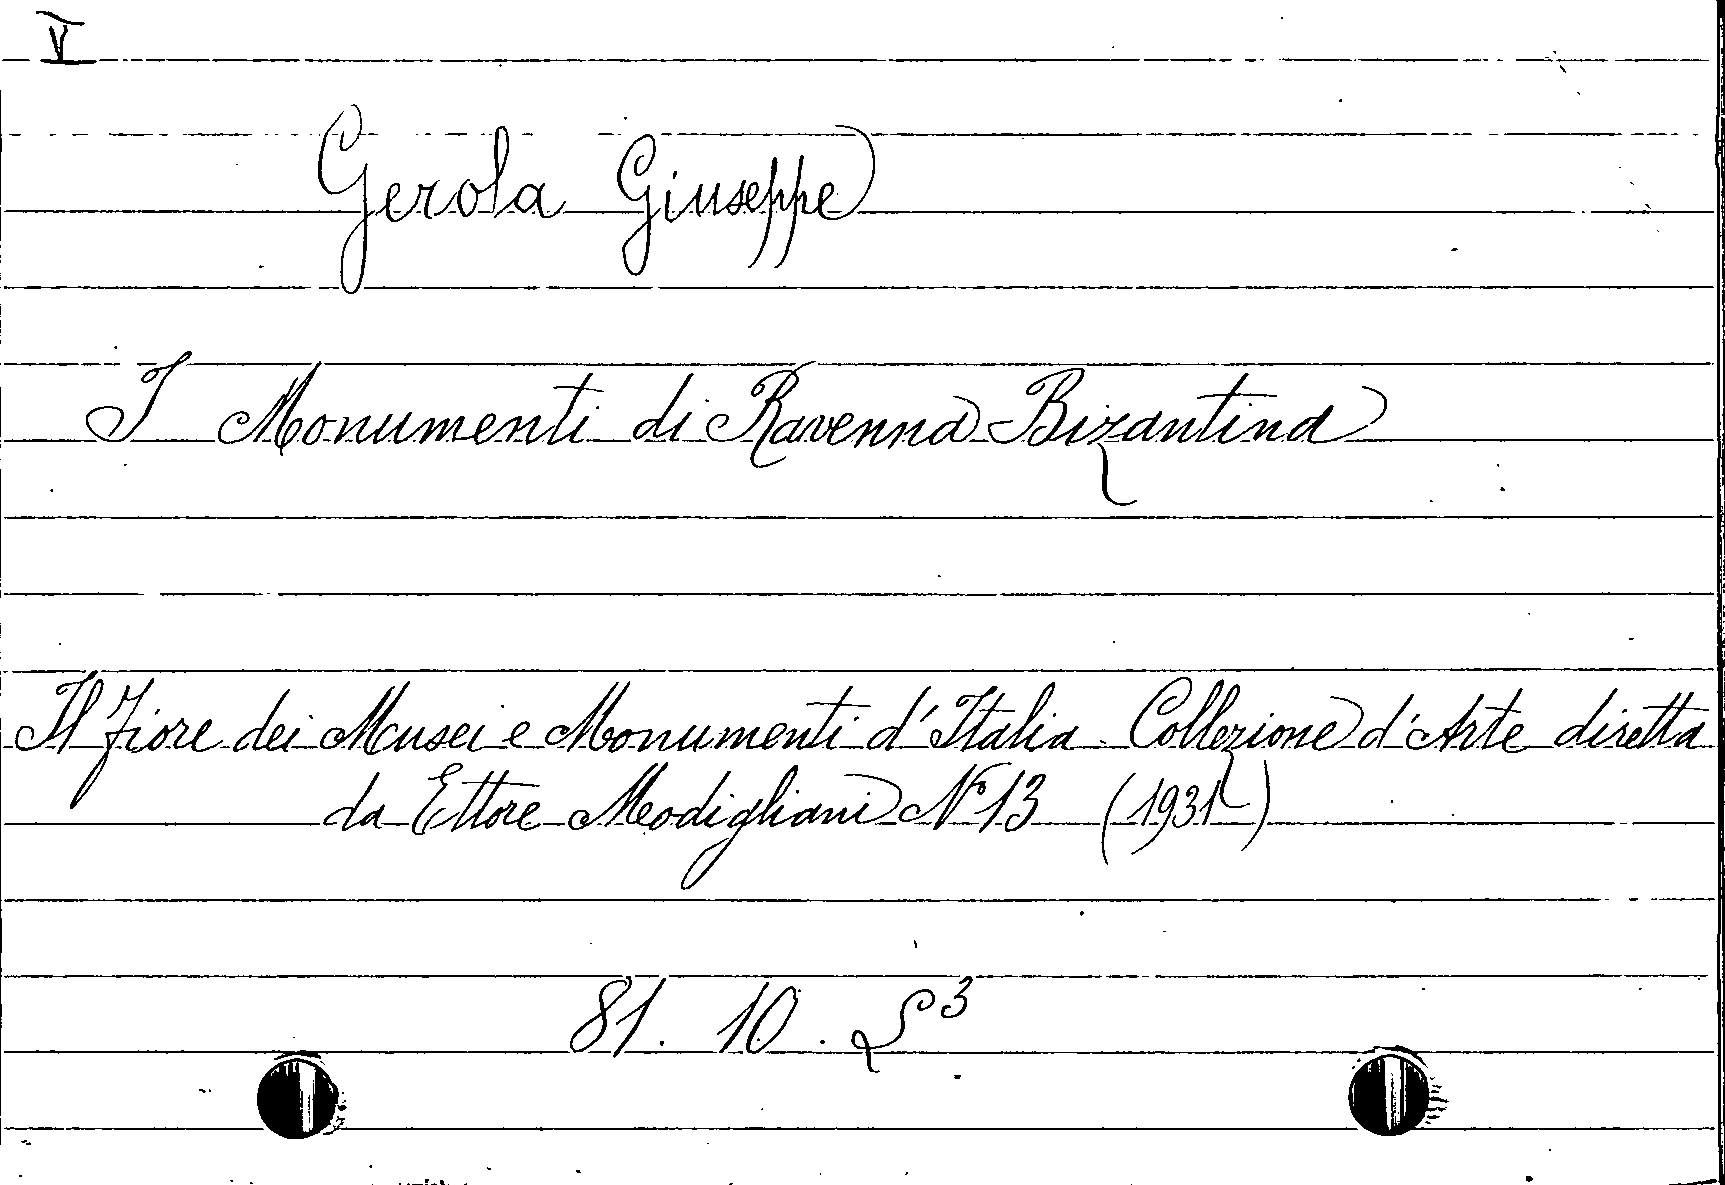 V
Gerola Giuseppe
I Monumenti di Ravenna Bizantina
Il Fiore dei Musei e Monumenti d'Italia. Collezione d'Arte diretta
da Ettore Modigliani N° 13 (1931)
81. 10. L³